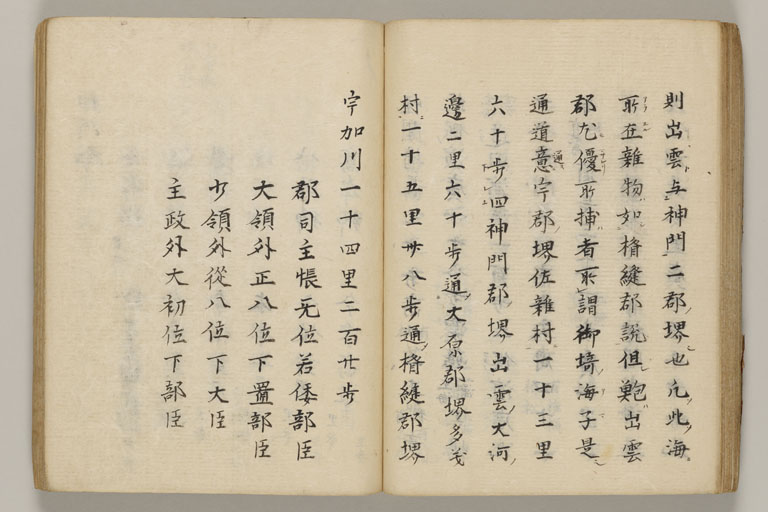 則出雲与神門二郡堺也凡此海
所在雜物如楯縫郡說但鮑出雲
郡尤優所捕者所謂御埼海子是
通道意宇郡堺佐雜村一十三里
六十歩通四神門郡堺出雲大河
邊二里六十歩通大原郡堺多義
村一十五里卅八歩通楯縫郡堺
宇加川一十四里二百廿歩
郡司主帳无位若倭部臣
大領外正八位下置部臣
少領外從八位下大臣
主政外大初位下部臣